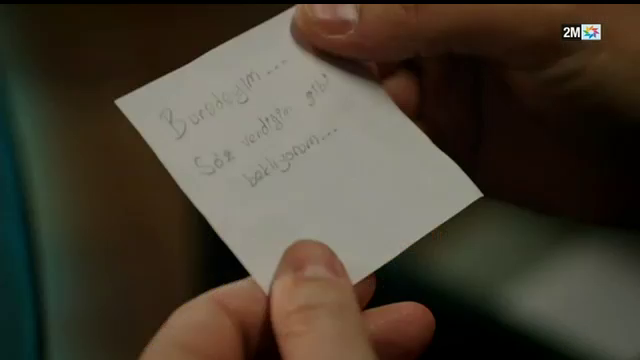 2M
Buradayım...
Söz verdiğim gibi
bekliyorum...